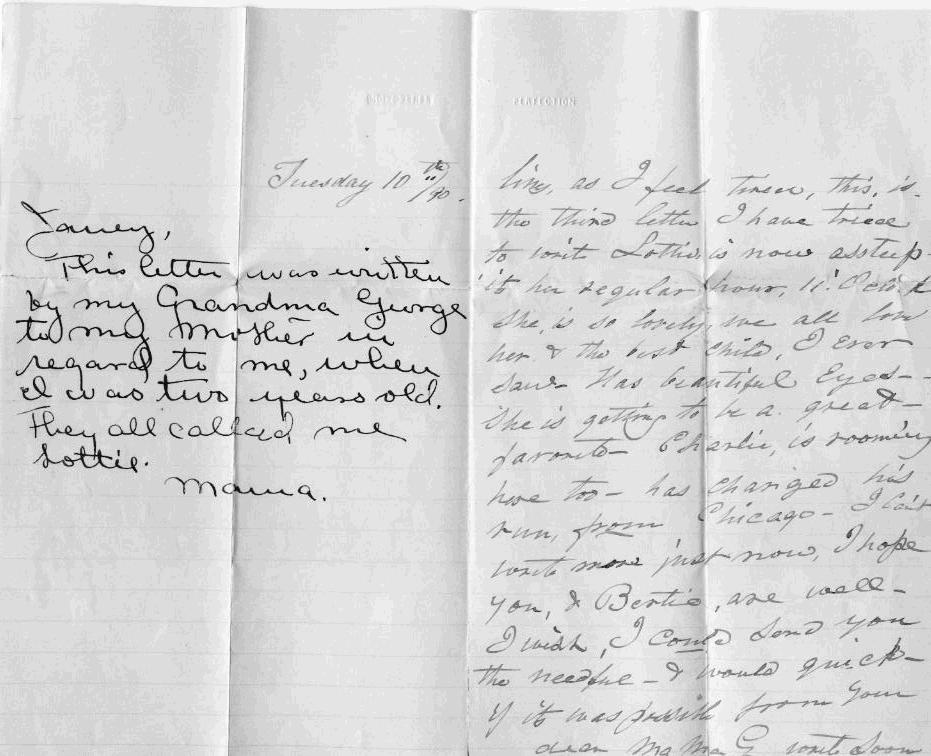 PERFECTION
Tuesday 10th 11/90.
Janey,
This letter was written
by my Grandma George
to my Mother in
regard to me, when
I was two years old.
They all called me
Lottie.
Mama.
line, as I feel tired, this, is
the third letter I have tried
to write Lottie is now asleep
it her regular hour, 11. O clock
she, is so lovely, we all love
her & the best child, I ever
saw - Has beautiful Eyes -
She is getting to be a great -
favorite - Charlie, is rooming
here too - has changed his
run, from Chicago - I can't
write more just now, I hope
you, & Bertie, are well -
I wish, I could send you
the needful - I would quick -
if it was possible from your
dear Ma Ma G write soon